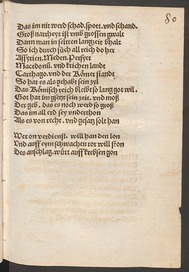 80
Das im nie werd schad, spott, vnd schand.
Groß narrheyt ist vmb grossen gwalt
Dann man in selten langzeit bhalt
So ich durch süch all reich do her
Assyrien. Meden. Persyer
Macedonū. vnd kriechen landt
Carthago. vnd der Römer standt
So hat es als gehabt sein zyl
Das Römisch reich bleibt so lang got wil.
Got hat im gsetzt sein zeit. vnd moß
Der geb. das es noch werd so groß
Das im all erd sey vnderthon
Als es von recht. vnd gesatz solt han
Wer on verdienst. will han den lon
Vnd auff eym schwachen ror will ston
Des anschlag. würt auff krebsen gon